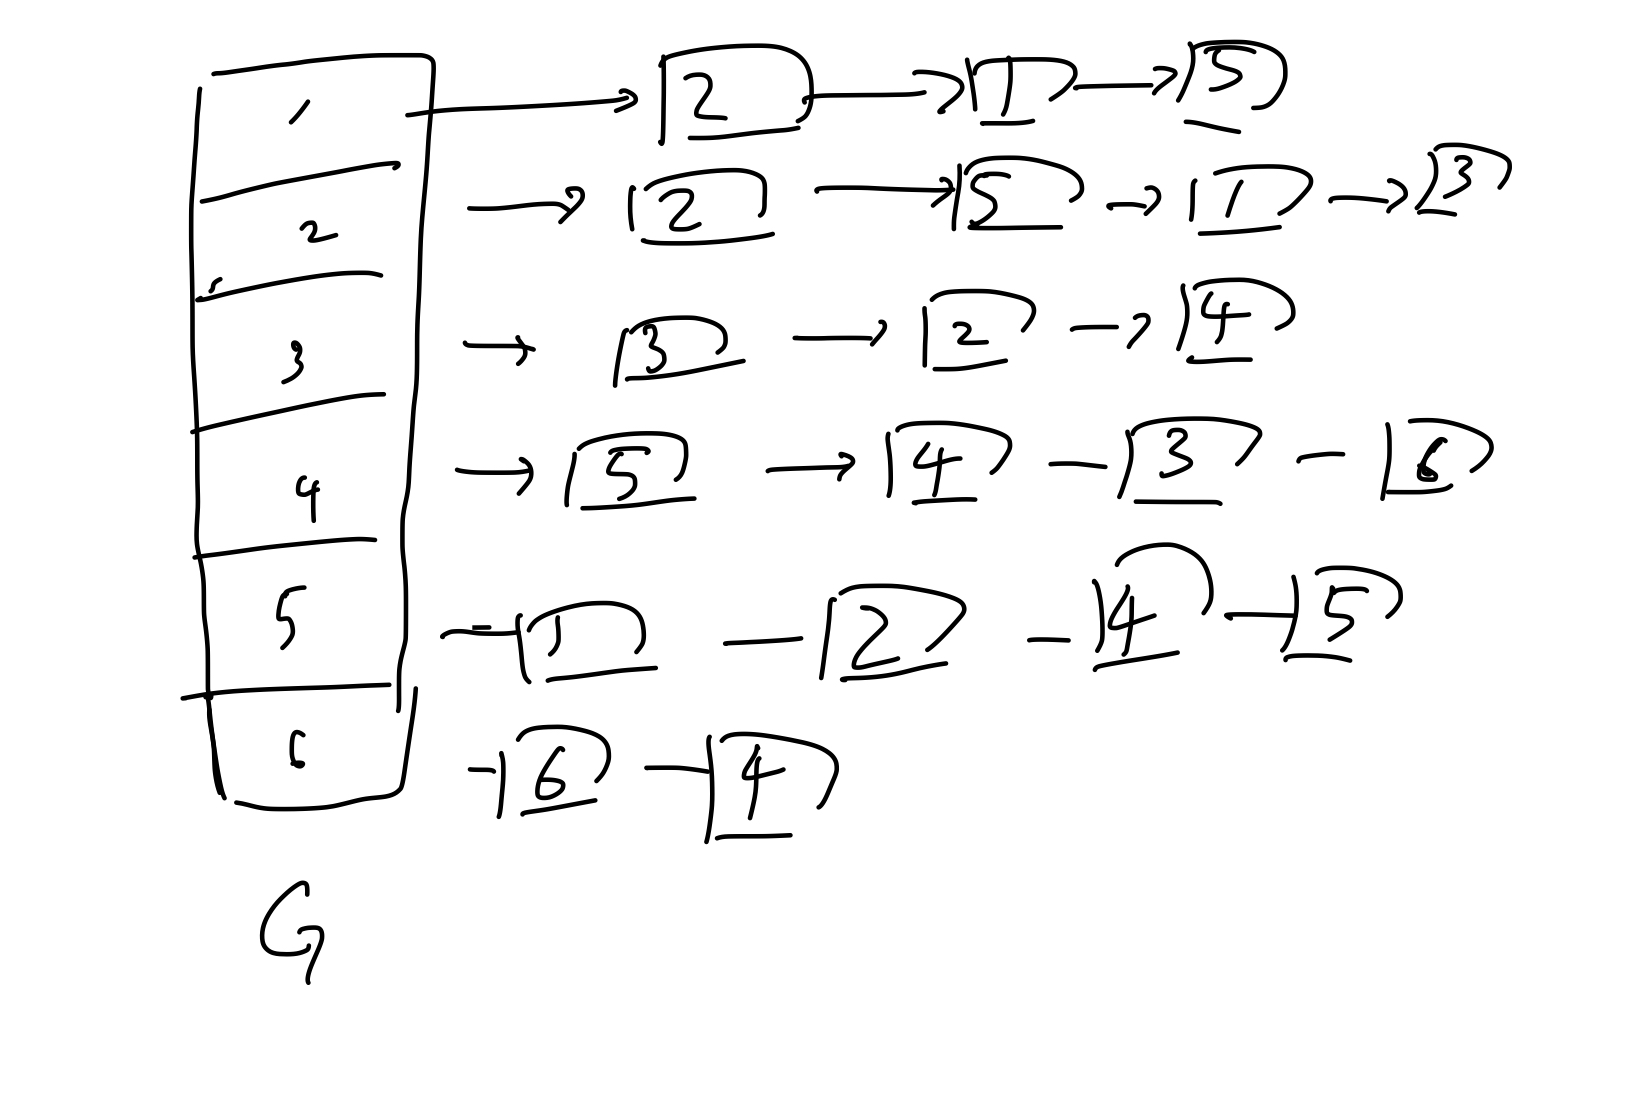 1 → 2 → 1 → 5
2 → 2 → 5 → 1 → 3
3 → 3 → 2 → 4
4 → 5 → 4 — 3 — 6
5 — 1 — 2 — 4 — 5
6 — 6 — 4
G